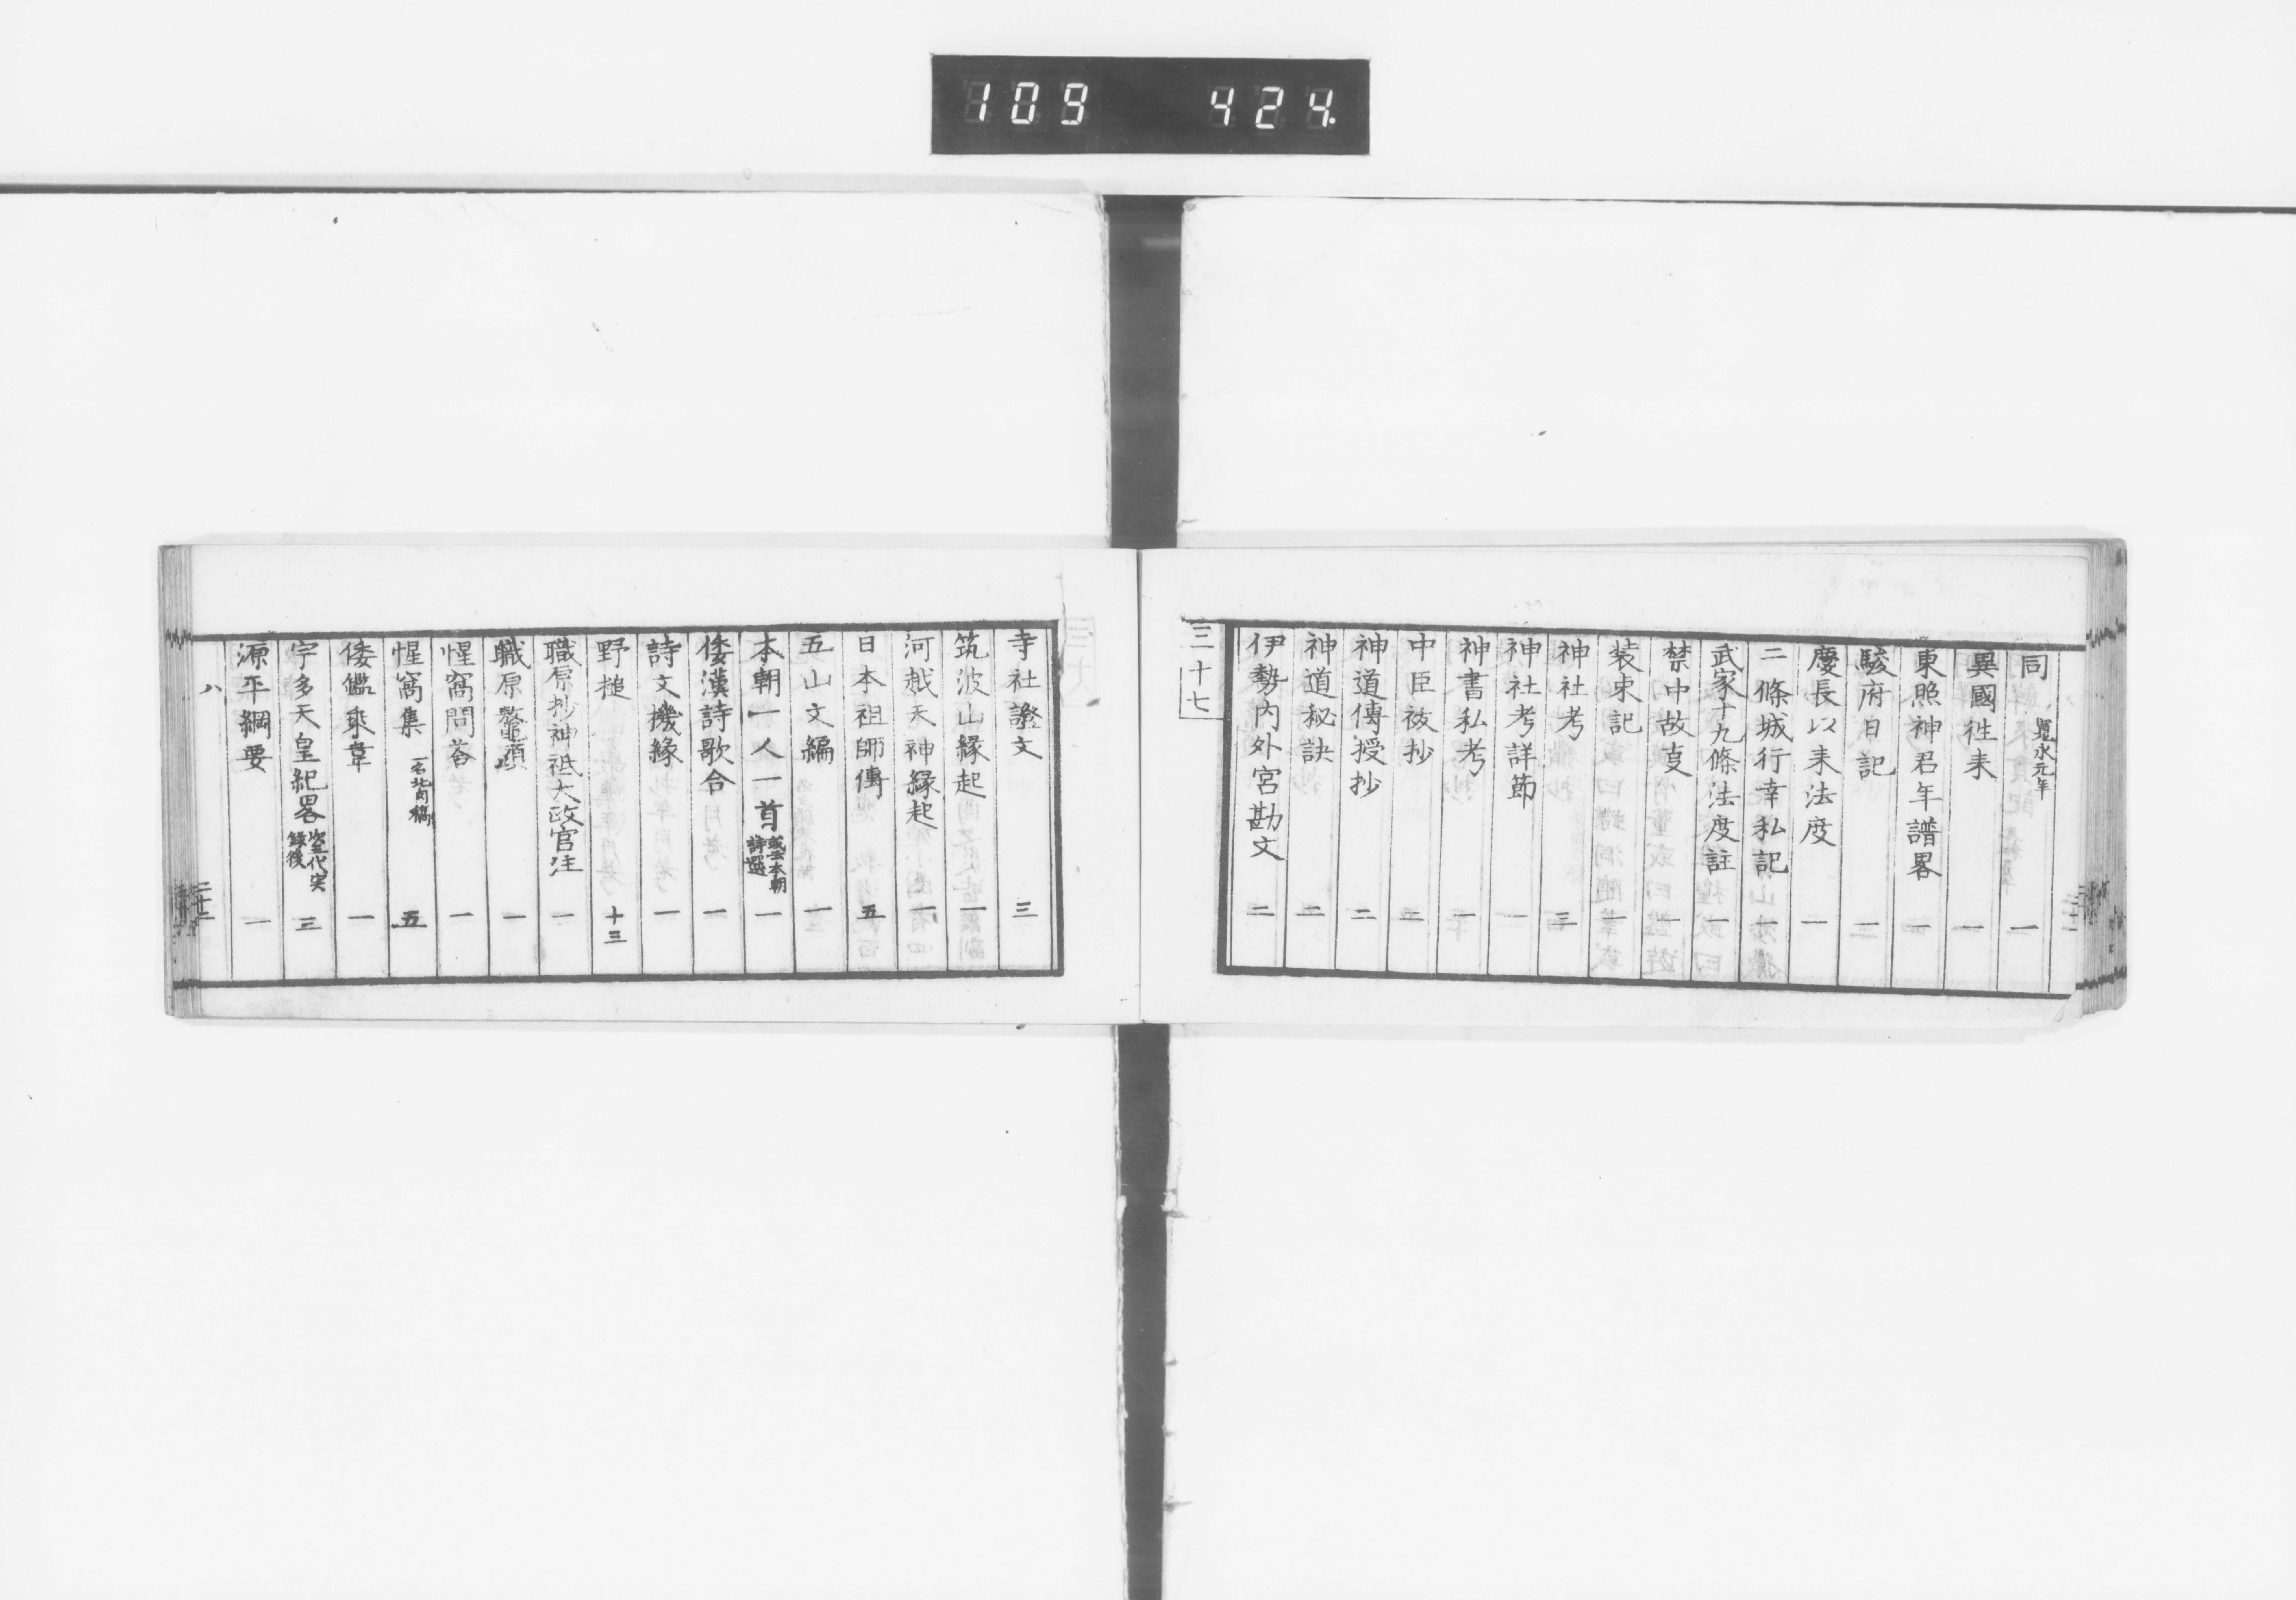 109 424.
同 寛永元年 一
異國徃来 一
東照神君年譜畧 一
駿府日記 二
慶長以来法度 一
二條城行幸私記 一
武家十九條法度註 一
禁中故叓 一
装束記 一
神社考 三
神社考詳節 一
神書私考 一
中臣祓抄 二
神道傳授抄 二
神道秘訣 二
伊勢内外宮勘文 二
三十七
寺社證文 三
筑波山縁起 一
河越天神縁起 一
日本祖師傳 五
五山文編 一
本朝一人一首 或云本朝詩選 一
倭漢詩歌合 一
詩文機緣 一
野槌 十三
職原抄神祗大政官注 一
職原鼇頭 一
惺窩問荅 一
惺窩集 一名北肉稿 五
倭鑑乘韋 一
宇多天皇紀畧 次三代実録後 三
源平綱要 一
八